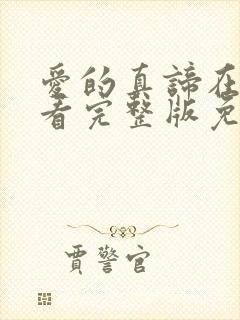 愛的真諦在
看完整版免
賈警官